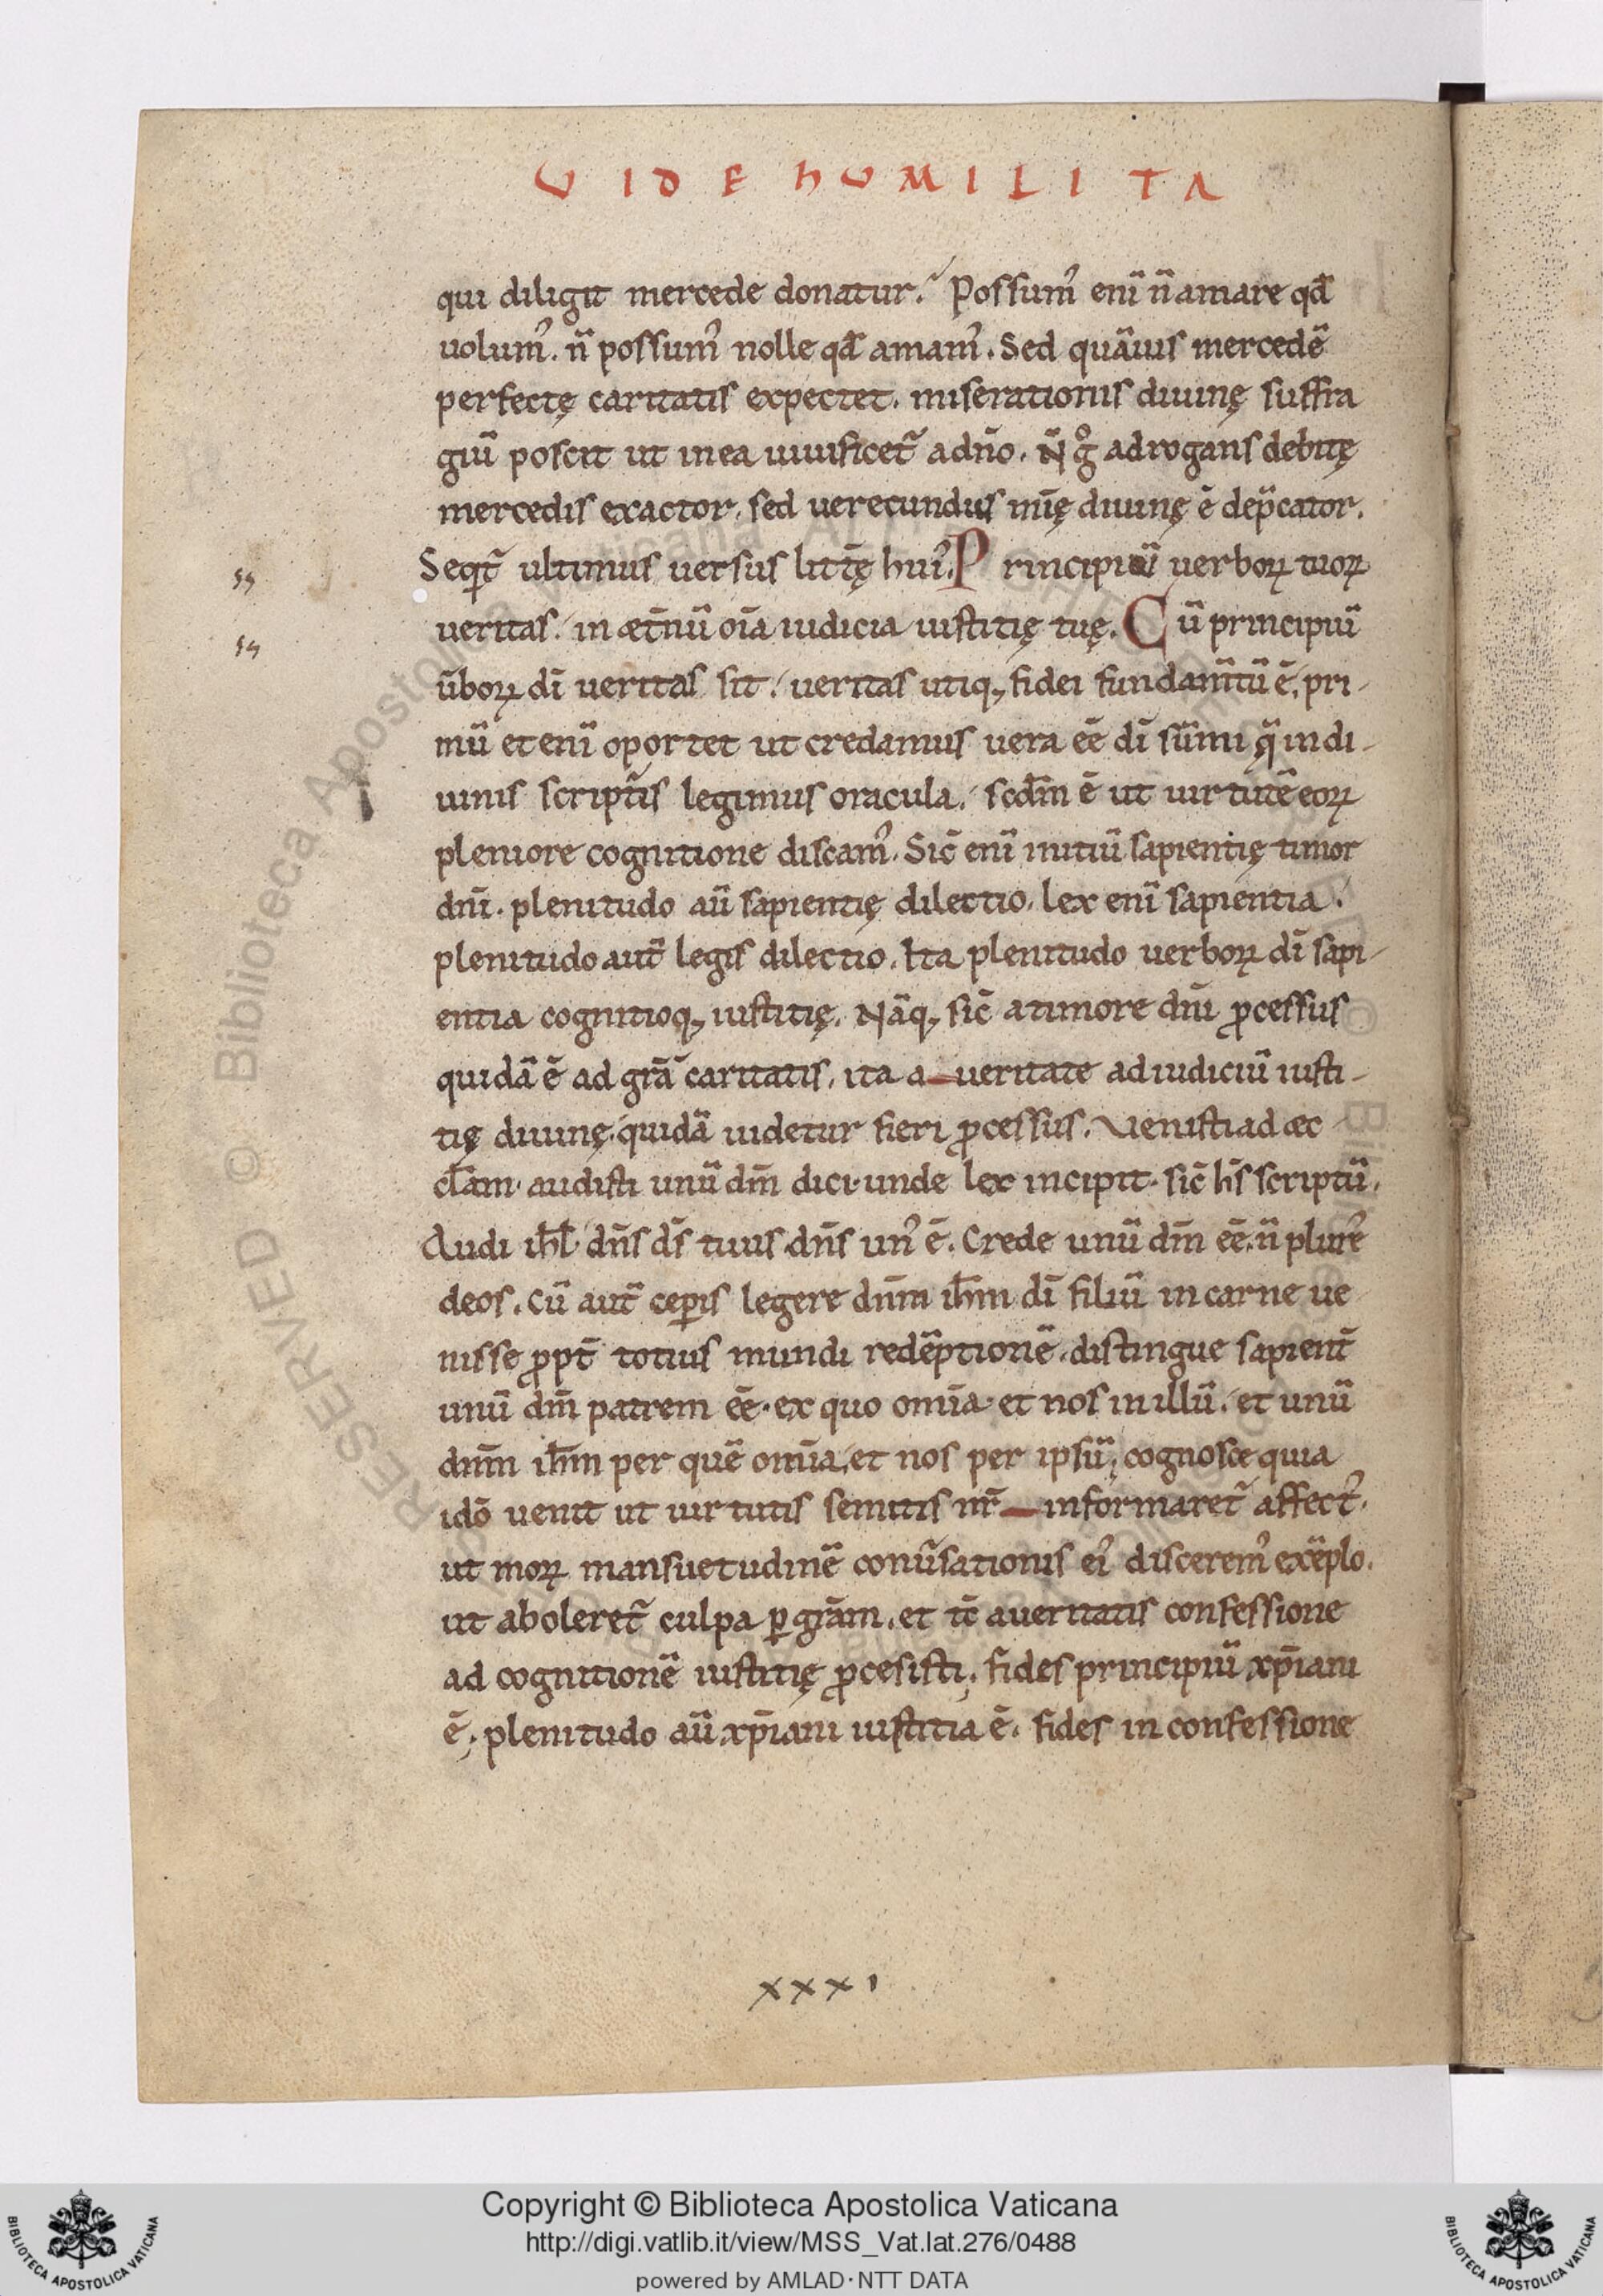 VIDE HUMILITA
qui diligit mercede donatur. Possum᾽ eni̅ n̅ amare qd̅
uolum᾽. n̅ possum᾽ nolle qd̅ amam᾽. Sed qua̅uis mercede̅
perfectę caritatis expectet. miserationis diuinę suffra
giu̅ poscit ut in ea uiuificet̅ a dn̅o. N̅ gͦ adrogans debitę
mercedis exactor. sed uerecundus mi̅ę diuinę e̅ dep̅cator.
Seqt̅ᷓ ultimus uersus litt̅ę hui᾽. Principiu̅ uerboꝝ tuoꝝ
ueritas. in æt̅nu̅ oi̅a iudicia iustitię tuę. Cu̅ principiu̅
u̅boꝝ di̅ ueritas sit. ueritas utiq; fidei fundam̅tu̅ e̅. pri-
mu̅ et eni̅ oportet ut credamus uera ee̅ di̅ su̅mi q̅ in di-
uinis script̅is legimus oracula. scd̅m e̅ ut uirtute̅ eoꝝ
pleniore cognitione discam᾽. Sic̅ eni̅ initiu̅ sapientię timor
dn̅i. plenitudo au̅ sapientię dilectio. lex eni̅ sapientia.
plenitudo aut̅ legis dilectio. Ita plenitudo uerboꝝ di̅ sapi-
entia cognitioq; iustitię. Na̅q; sic̅ a timore dn̅i ꝓcessus
quida̅ e̅ ad gr̅a̅ caritatis. ita a ueritate ad iudiciu̅ iusti-
tię diuinę. quida̅ uidetur fieri ꝓcessus. Venisti ad æc-
cl̅am. audisti unu̅ dm̅ dici. unde lex incipit. sic̅ hs̅ scriptu̅.
Audi ihl̅ dn̅s ds̅ tuus dn̅s un᾽ e̅. Crede unu̅ dm̅ ee̅. n̅ plure᾽
deos. Cu̅ aut̅ ceꝑis legere dn̅m ih̅m di̅ filiu̅ in carne ue
nisse ꝓpt̅ totius mundi rede̅ptione̅. distingue sapient̅
unu̅ dm̅ patrem ee̅. ex quo omi̅a. et nos in illu̅. et unu̅
dn̅m ih̅m per que̅ omi̅a. et nos per ipsu̅; cognosce quia
ido̅ uenit ut uirtutis semitis nr̅ informaret̅ affect᾽.
ut moꝝ mansuetudine̅ conu̅sationis ei᾽ discerem᾽ exe̅plo.
ut aboleret̅ culpa ꝑ gr̅am. et tc̅ a ueritatis confessione
ad cognitione̅ iustitię ꝓcesisti; fides principiu̅ xp̅iani
e̅; plenitudo au̅ xp̅iani iustitia e̅. fides in confessione
xxxi
Copyright © Biblioteca Apostolica Vaticana
http://digi.vatlib.it/view/MSS_Vat.lat.276/0488
powered by AMLAD·NTT DATA
BIBLIOTECA APOSTOLICA VATICANA
BIBLIOTECA APOSTOLICA VATICANA